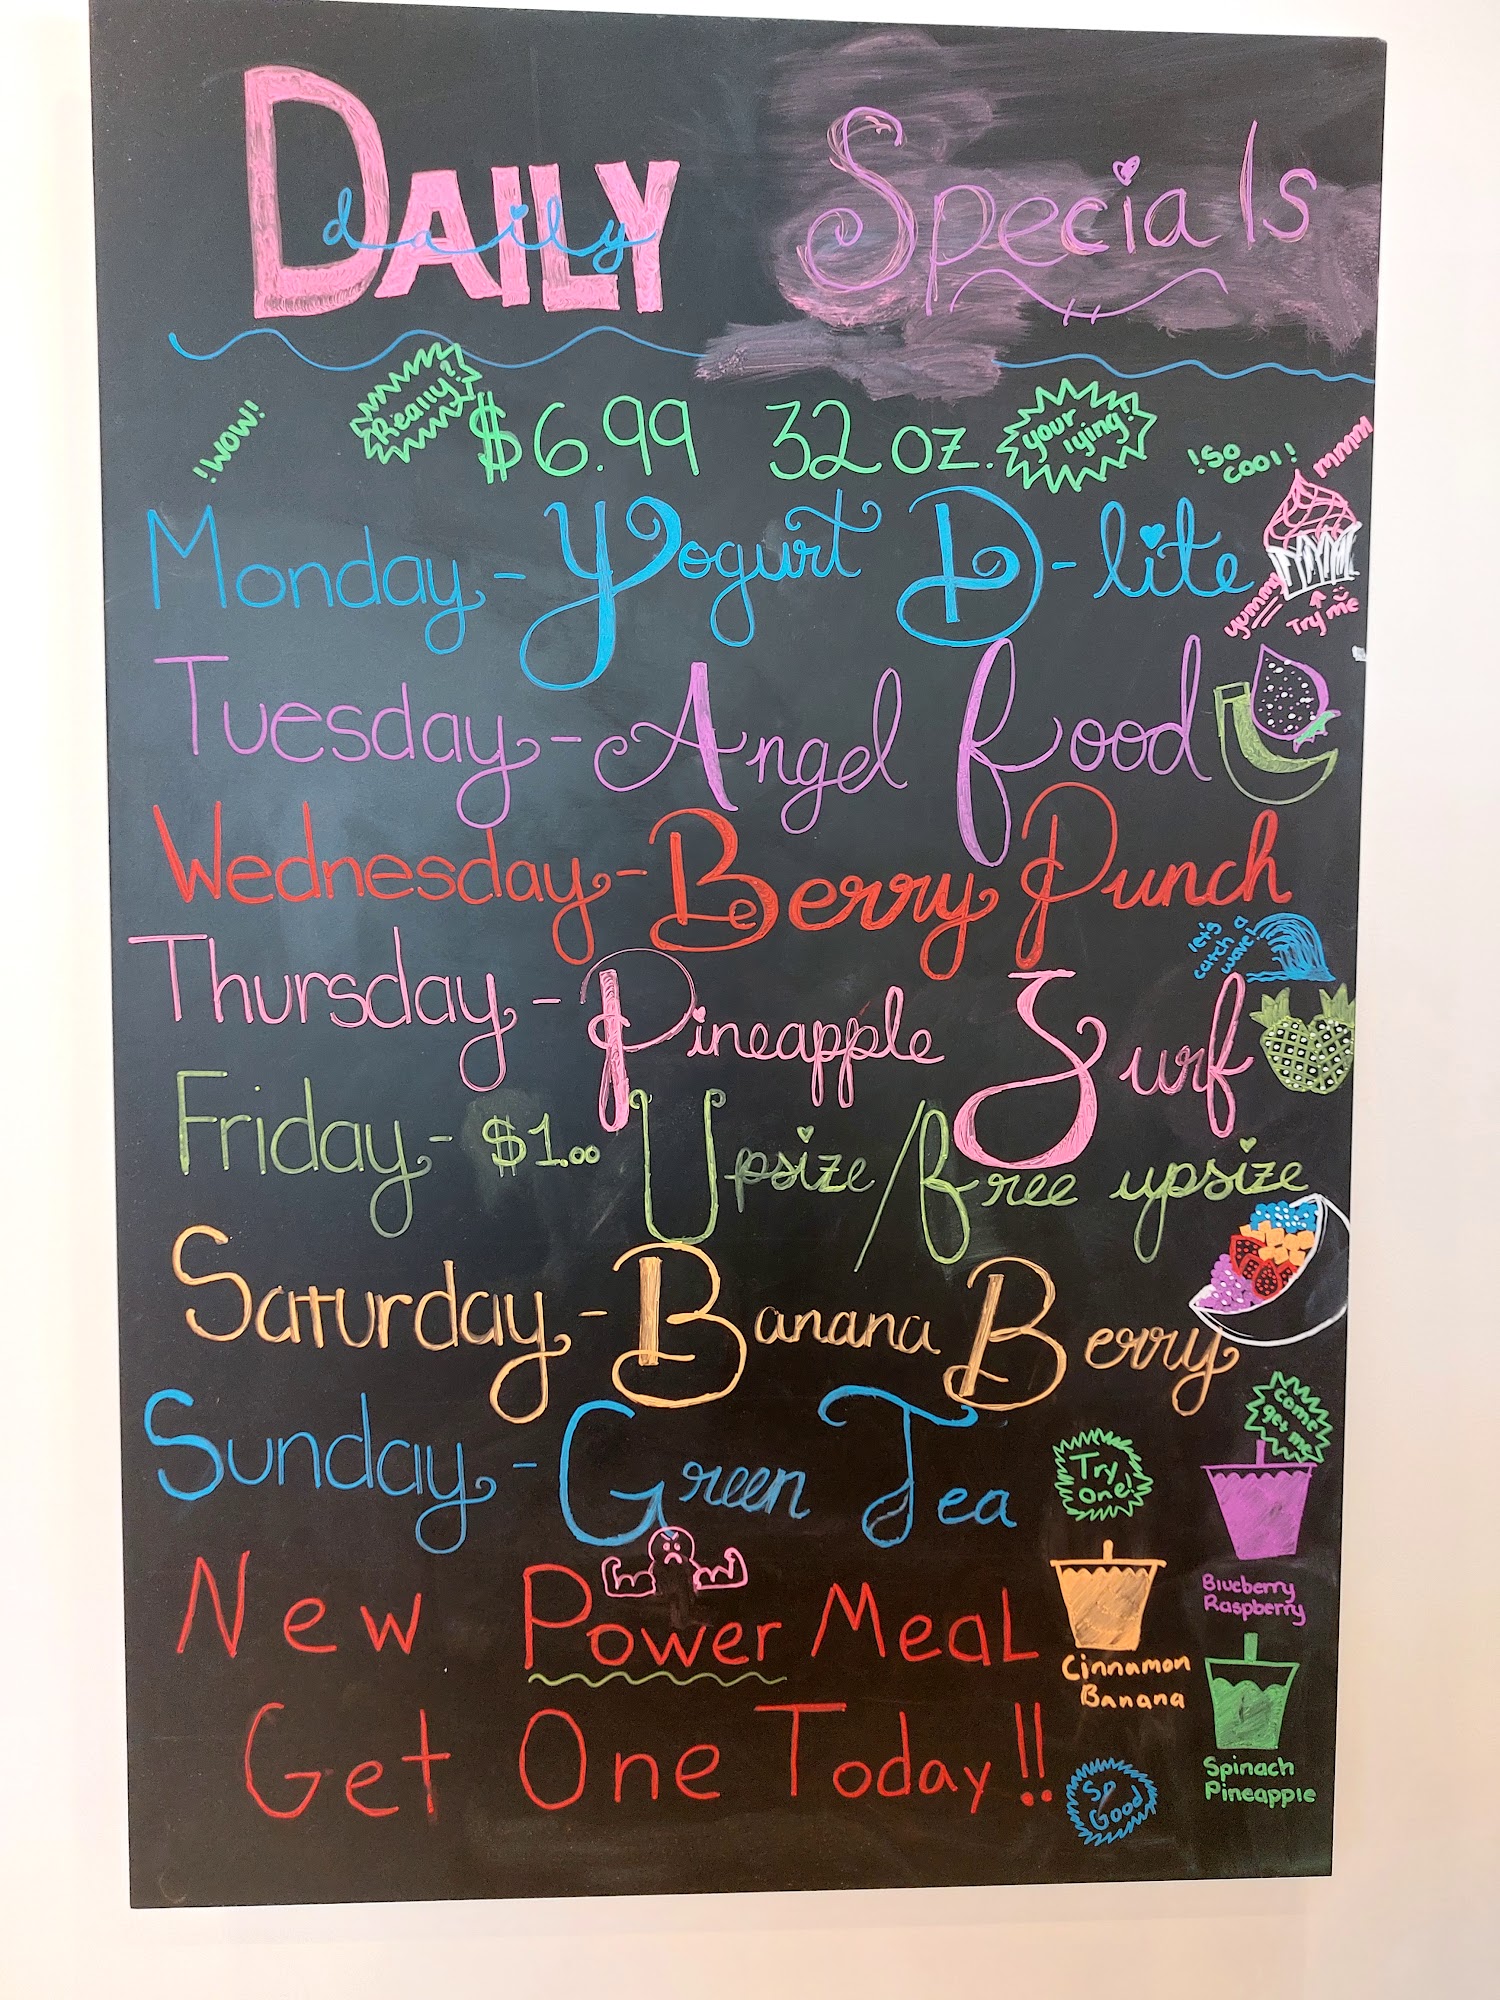 DAILY Specials
daily
!WOW!
Really?
$6.99 32 oz.
your lying!
!SO COOL!
mmm
Monday - Yogurt D-lite
yummy
Try me
Tuesday - Angel Food
Wednesday - Berry Punch
let's
catch a
wave!
Thursday - Pineapple Surf
Friday - $1.00 Upsize/free upsize
Saturday - Banana Berry
Sunday - Green Tea
Try
one!
come
get me
New Power Meal
Blueberry
Raspberry
Cinnamon
Banana
Get One Today!!
Spinach
Pineapple
So
Good